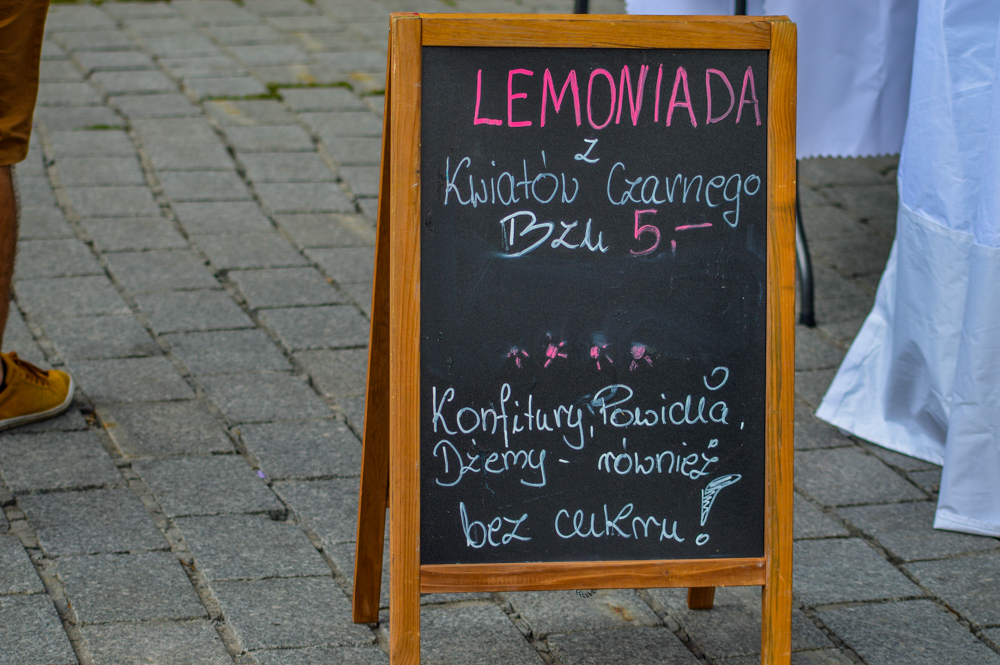 LEMONIADA
z
Kwiatów Czarnego
Bzu 5,-
Konfitury, Powidła,
Dżemy - również
bez cukru!